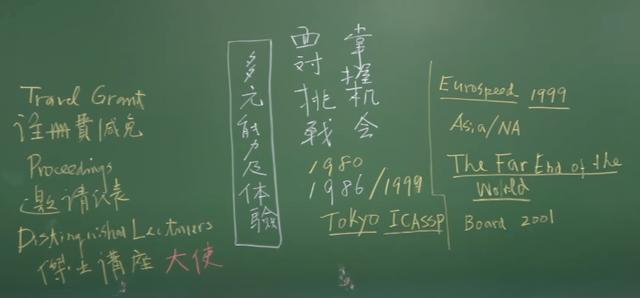 Travel Grant
註冊費減免
Proceedings
邀請代表
Distinguished Lecturers
傑士講座 大使
多元能力及体驗
面対挑戰
掌握机会
1980
1986/1999
Tokyo ICASSP
Eurospeed 1999
Asia/NA
The Far End of the
World
Board 2001